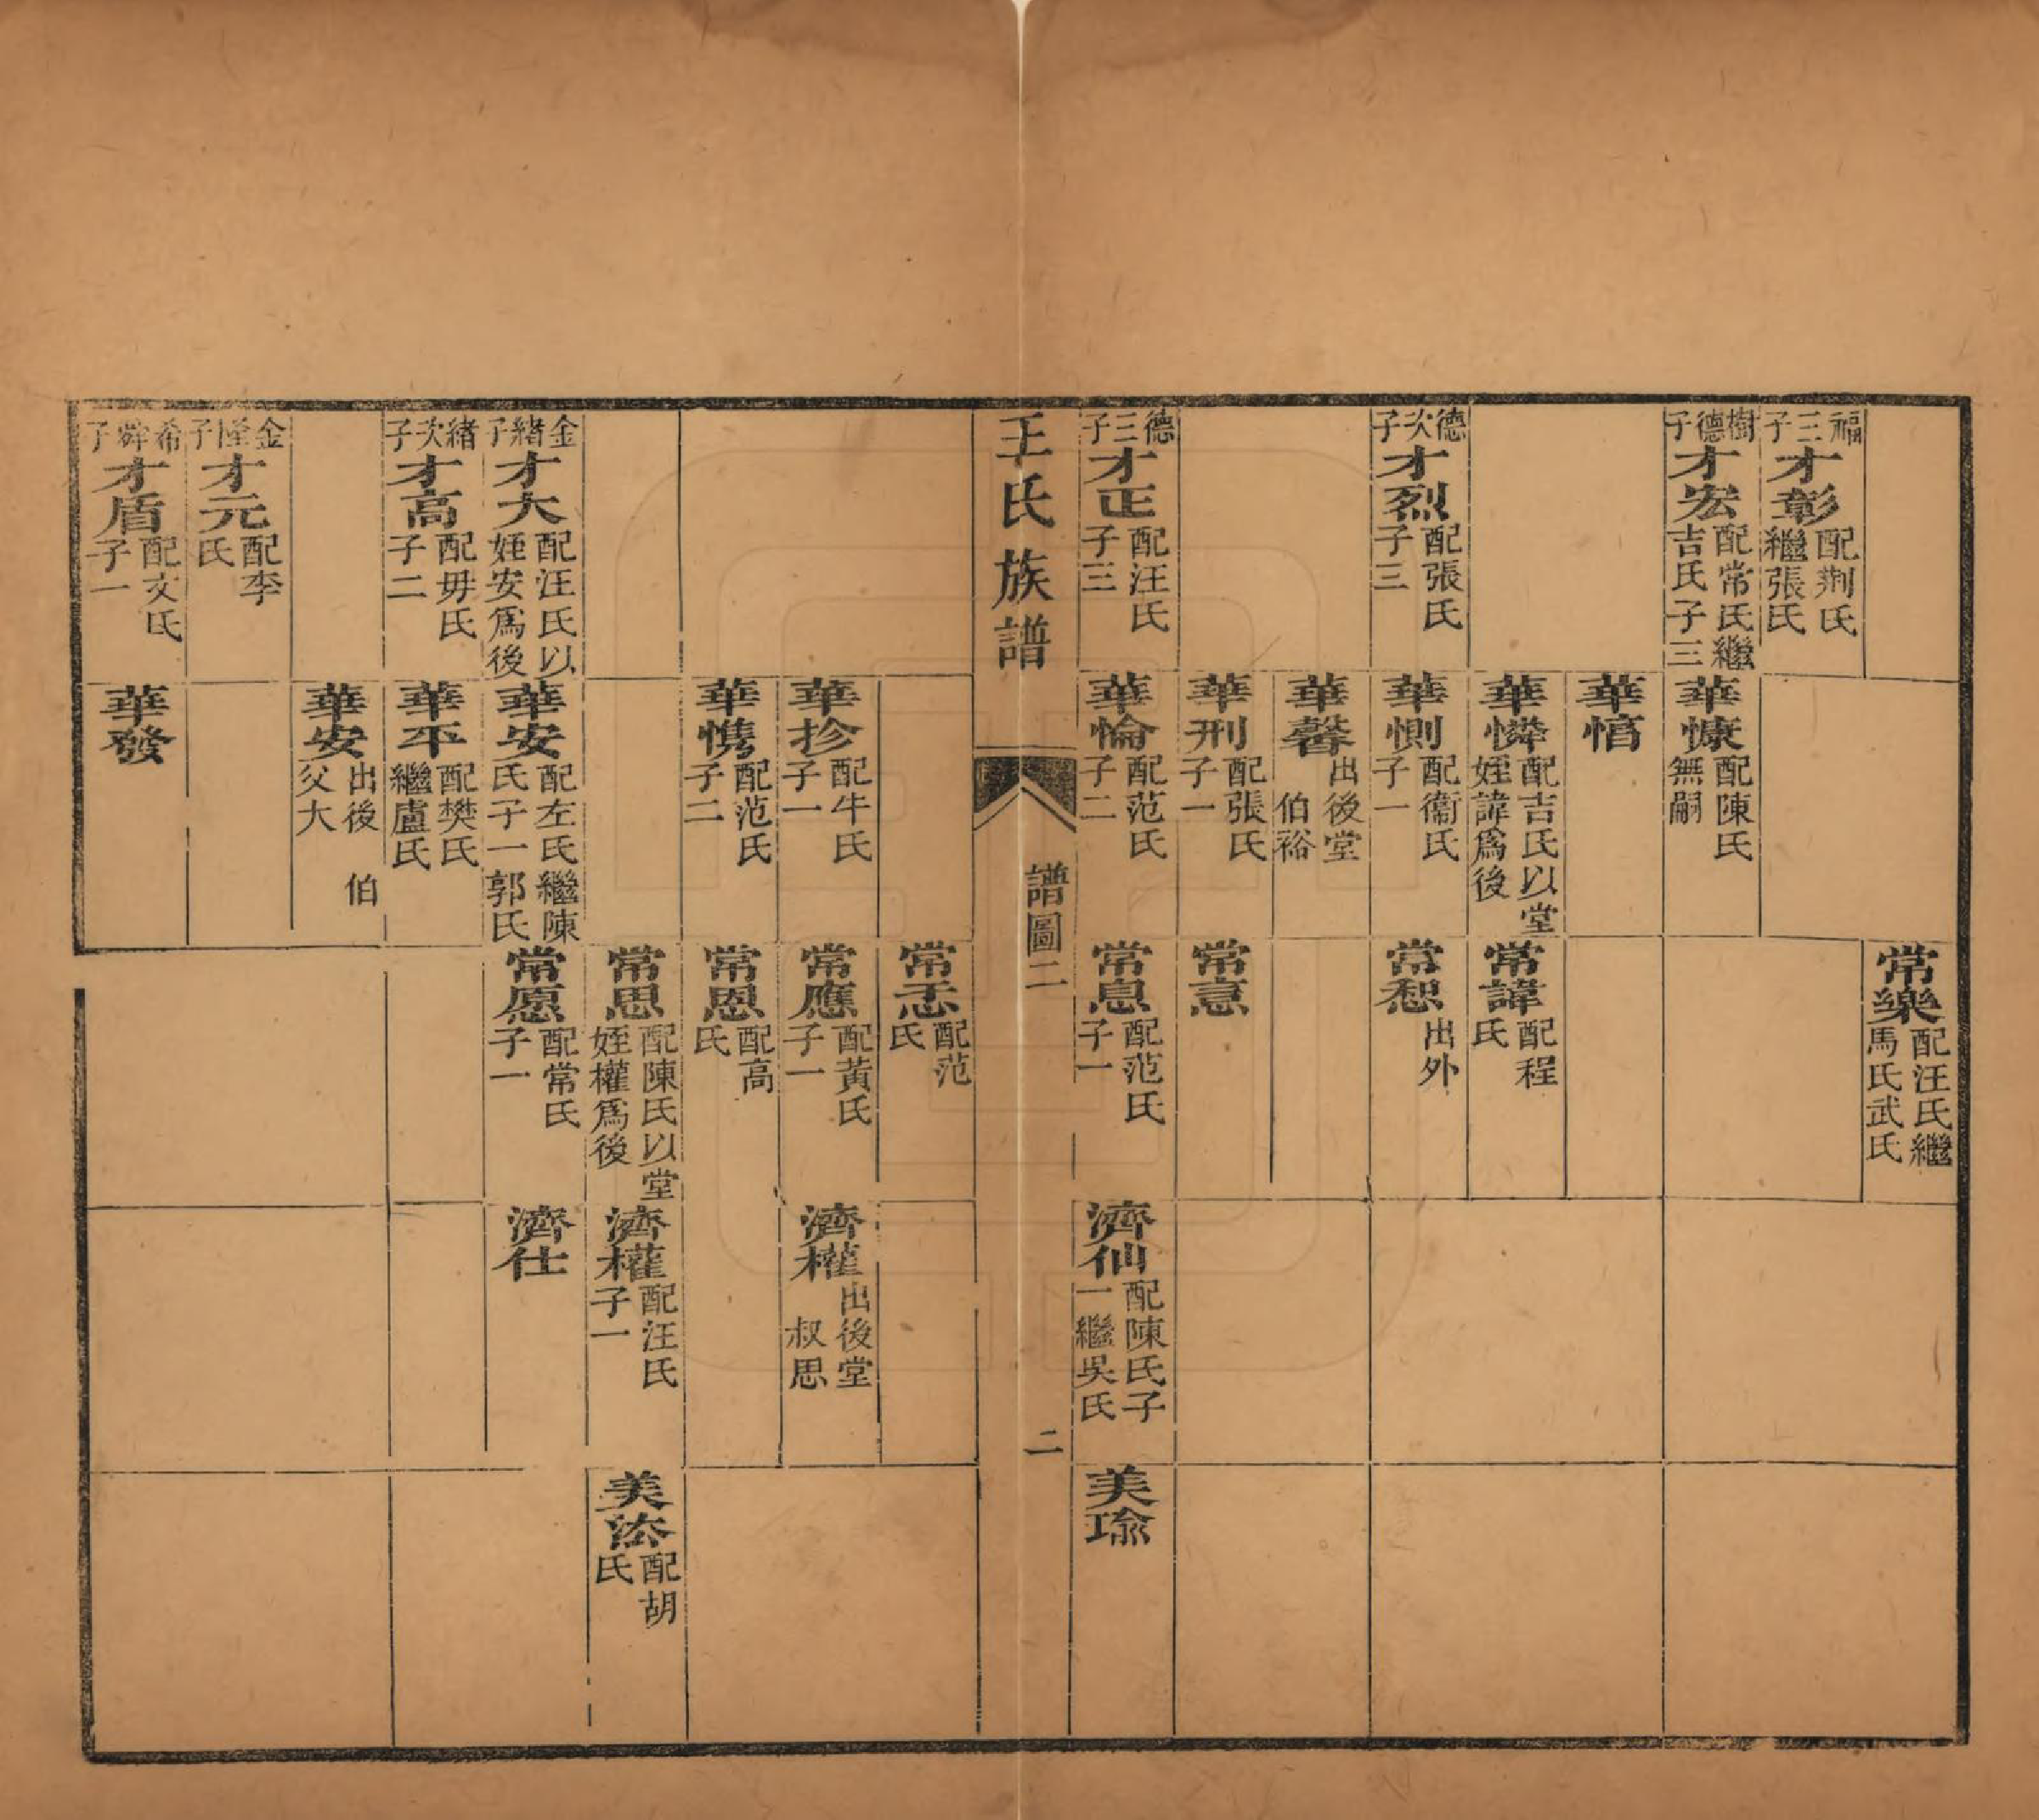 常樂 配汪氏繼馬氏武氏
福三子 才彰 配荆氏繼張氏
樹德子 才宏 配常氏繼吉氏子三
華慷 配陳氏無嗣
華愊
華憐 配吉氏以堂姪諱爲後
常諱 配程氏
德次子 才烈 配張氏子三
華惻 配衞氏子一
常恕 出外
華馨 出後堂伯裕
華刑 配張氏子一
常意
德三子 才正 配汪氏子三
華惀 配范氏子二
常息 配范氏子一
濟仙 配陳氏子一繼吳氏
美瑜
王氏族譜 譜圖二 二
常恶 配范氏
華抮 配牛氏子一
常應 配黃氏子一
濟權 出後堂叔思
華㦗 配范氏子二
常恩 配高氏
常思 配陳氏以堂姪權爲後
濟權 配汪氏子一
美添 配胡氏
金緒子 才大 配汪氏以姪安爲後
華安 配左氏繼陳氏子一郭氏
常愿 配常氏子一
濟仕
緒次子 才高 配毋氏子二
華平 配樊氏繼盧氏
華安 出後伯父大
金隆子 才元 配李氏
希舜子 才盾 配文氏子一
華發